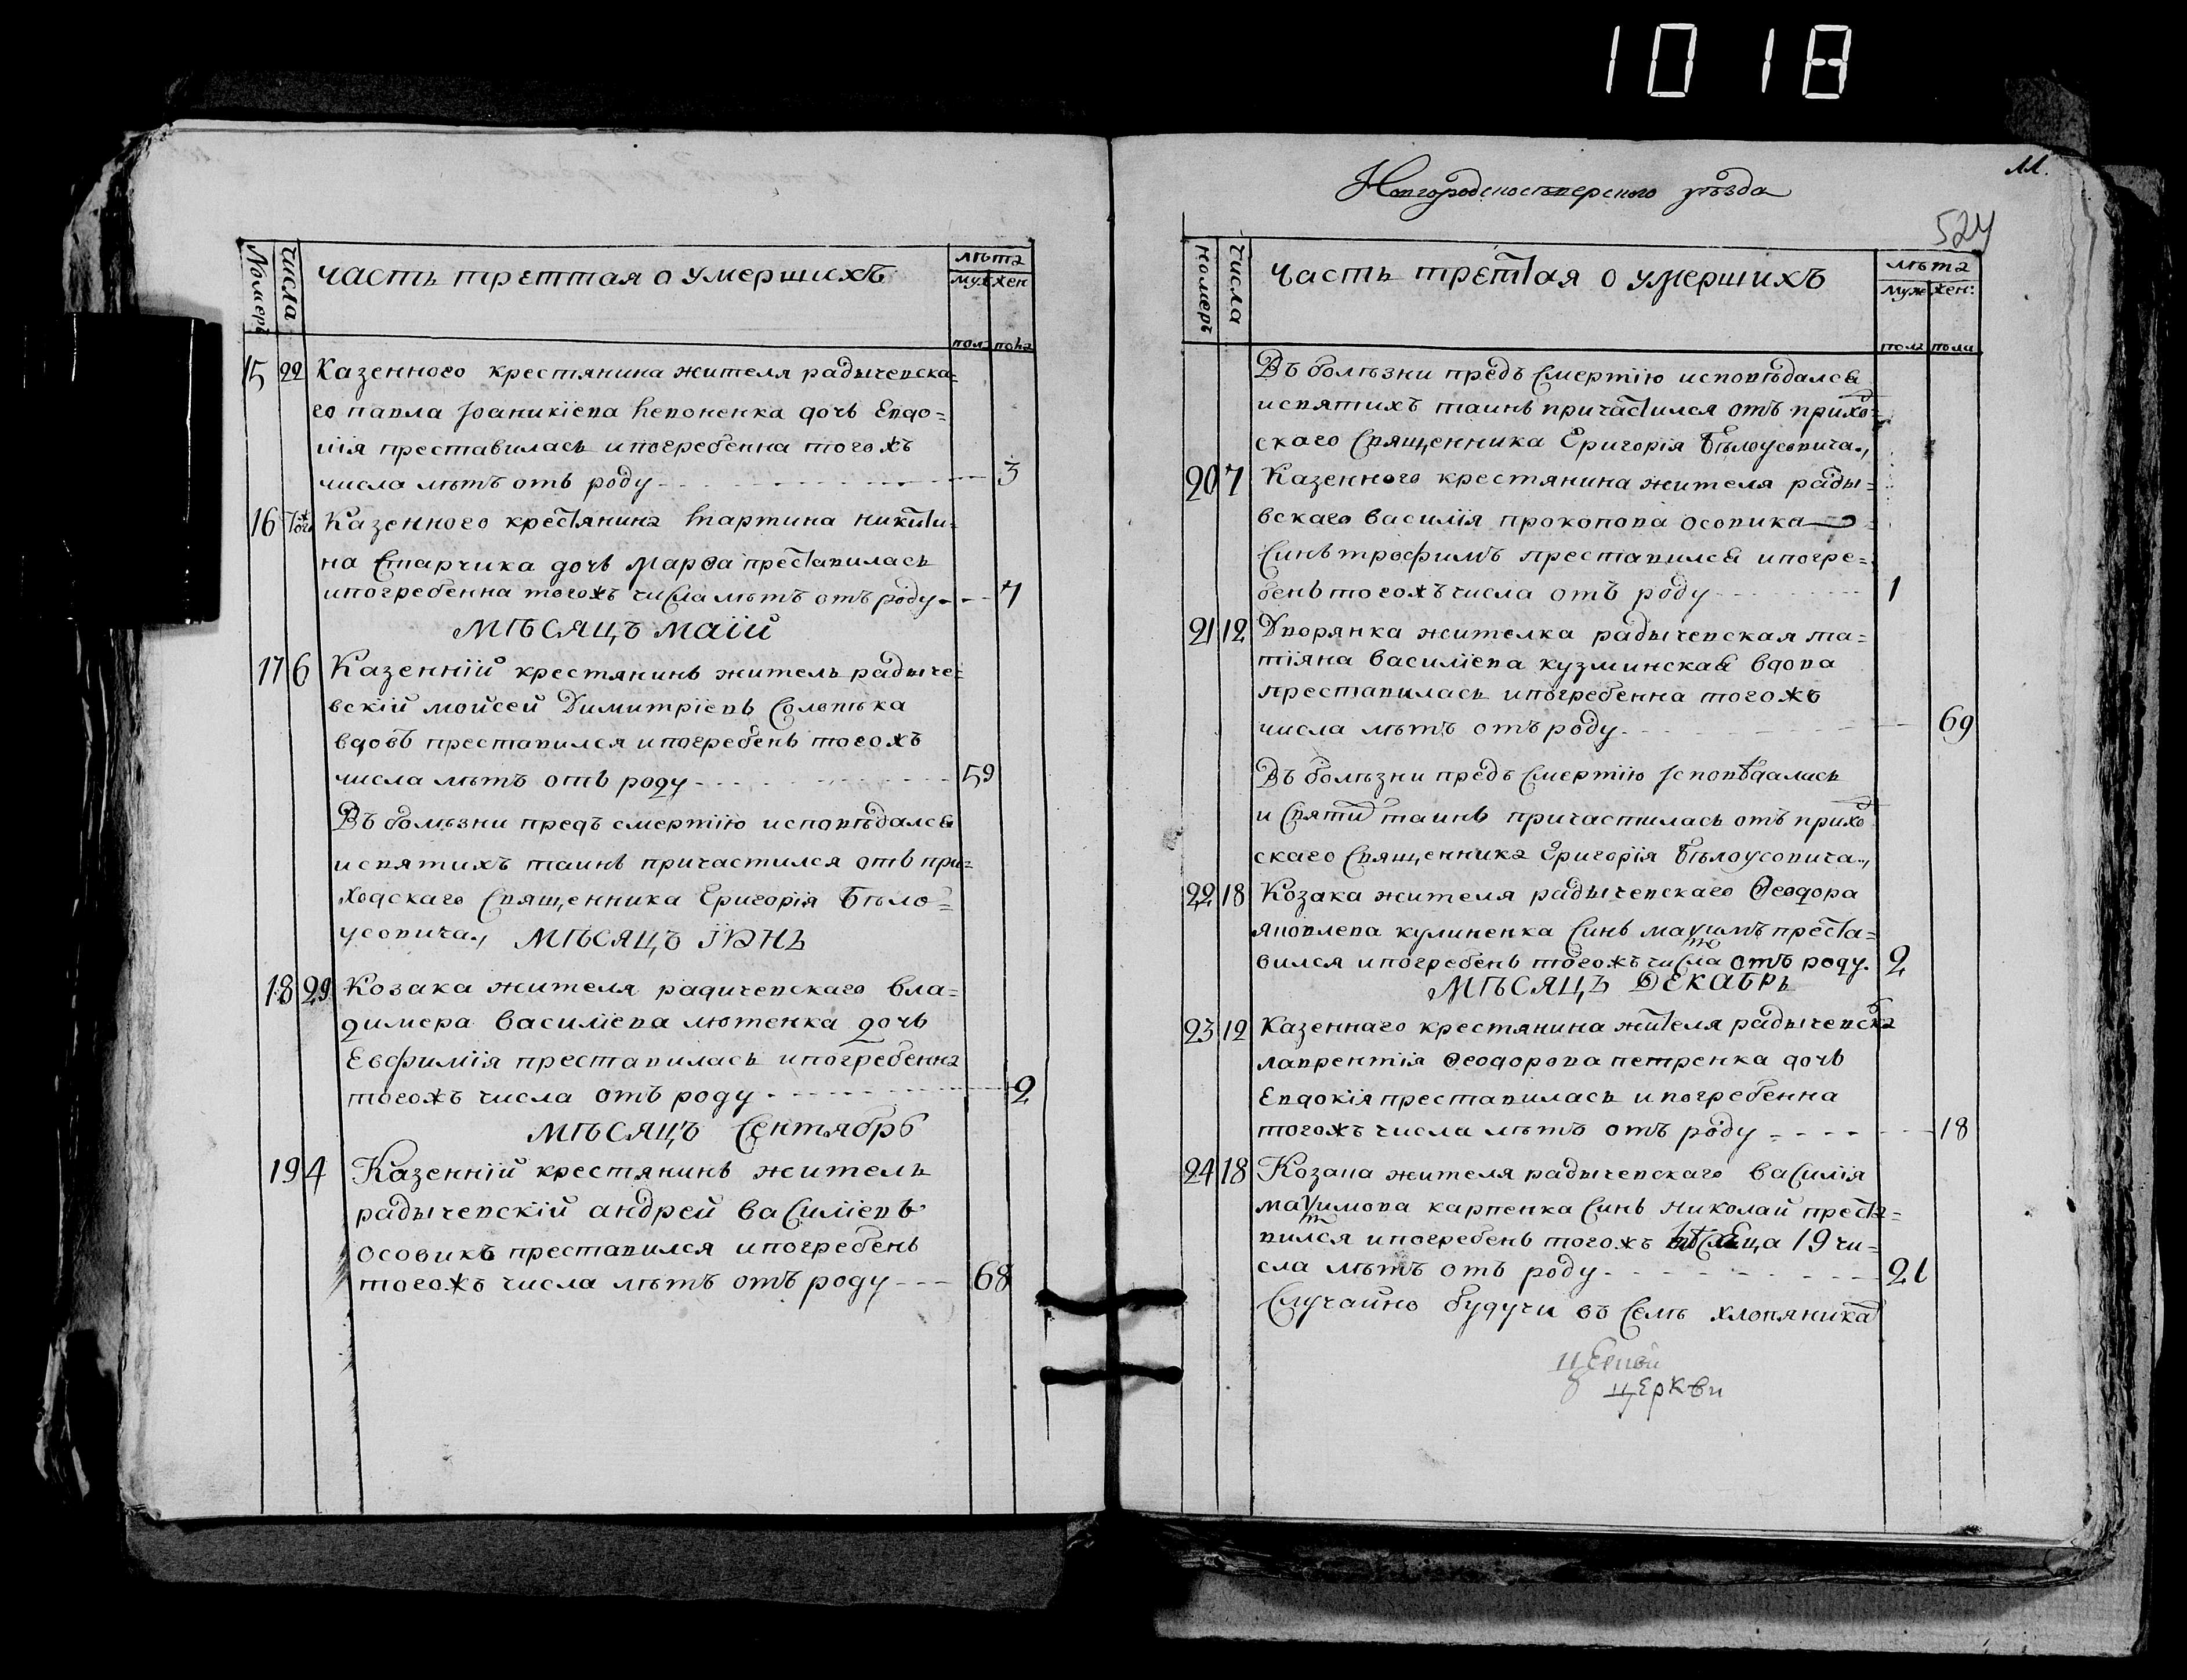 1018
Номеръ
Числа
часть третгая о умершихъ
лѣта
муж
жен
пола
пола
15 22 Казенного крестянина жителя радычевска=
го павла Іоаникіева
дочь Евдо=
кія преставилась и погребенна тогожъ
числа лѣтъ отъ роду 3
16 Тогож Казенного крестянина мартина никити=
на Старчика дочь Марѳа преставилась
и погребенна тогожъ числа лѣтъ отъ роду 7
МѢСЯЦЪ МАІЙ
17 6 Казенній крестянинъ житель радыче=
вскій мойсей Димитріевъ Соловѣка
вдовъ преставился и погребенъ тогожъ
числа лѣтъ отъ роду 59
Въ болѣзни предъ смертію исповѣдался
и святихъ таинъ причастился отъ при=
ходскаго Священника Григорія Бѣло=
усовича., МѢСЯЦЪ ІЮНЬ
18 29 Козака жителя радичевскаго вла=
димера василіева лютенка дочь
Евфимія преставилась и погребенна
тогожъ числа отъ роду 2
МѢСЯЦЪ Сентябрь
19 4 Казенній крестянинъ житель
радычевскій андрей василіевъ
осовикъ преставился и погребенъ
тогожъ числа лѣтъ отъ роду 68
11.
Новгородсеверского уѣзда
524
номеръ
числа
часть третïая о умершихъ
лѣта
муж
жен:
пола
пола
Въ болѣзни предъ Смертію исповѣдался
и святихъ таинъ причастился отъ прихо=
скаго Священника Григорія Бѣлоусовича.,
20 7 Казенного крестянина жителя рады=
вскаго василія прокопова осовика
Синъ трофимъ преставился и погре=
бенъ тогожъ числа отъ роду 1
21 12 Дворянка жителка радычевская та=
тіяна василіева кузминская вдова
преставилась и погребенна тогожъ
числа лѣтъ отъ роду 69
Въ болѣзни предъ Смертію Ісповѣдалась
и Святих таинъ причастилась отъ прихо
скаго Священника Григорія Бѣлоусовича.,
22 18 Козака жителя радычевскаго Ѳеодора
яковлева кулиненка Синъ маѯимъ преста=
вился и погребенъ тогожъ числа отъ роду. 2
МѢСЯЦЪ ДЕКАБРЬ
23 12 Казеннаго крестянина жителя радычевска
лаврентія Ѳеодорова петренка дочь
Евдокія преставилась и погребенна
тогожъ числа лѣтъ отъ роду 18
24 18 Козака жителя радычевскаго василія
маѯимова карпенка Синъ николай преста=
вился и погребенъ тогожъ мѣсяца 19 чи=
сла лѣтъ отъ роду 21
Случайно будучи въ Селѣ хлопяника
церкви